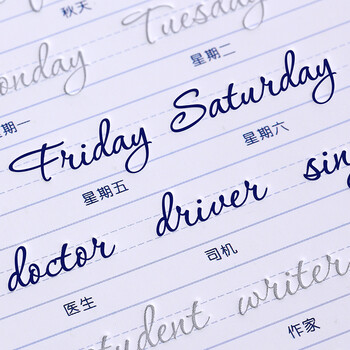 秋天 Tuesday
onday 星期二
星期一 Friday Saturday
星期五 星期六
doctor driver sin
医生 司机
student writer
作家